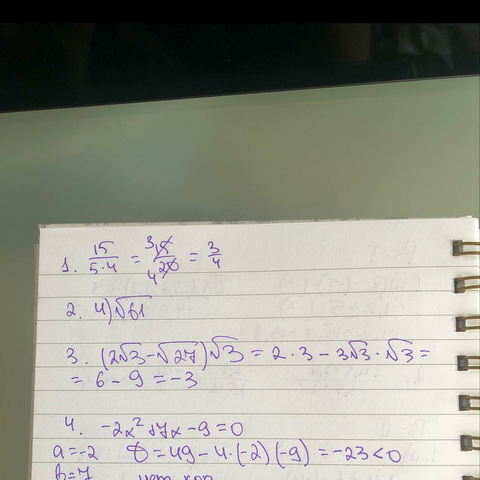 1. 15/5·4 = 15/20 = 3/4
2. 4) √61
3. (2√3 - √27)√3 = 2·3 - 3√3·√3 =
= 6 - 9 = -3
4. -2x² + 7x - 9 = 0
a = -2 D = 49 - 4·(-2)(-9) = -23 < 0
b = 7 нет кор